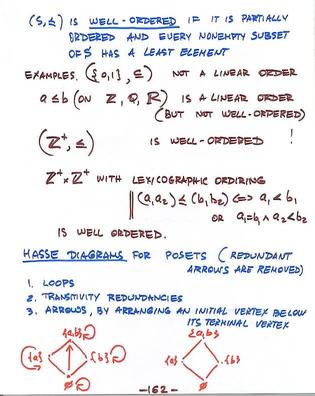 (S,≤) IS WELL-ORDERED IF IT IS PARTIALLY
ORDERED AND EVERY NONEMPTY SUBSET
OF S HAS A LEAST ELEMENT
EXAMPLES. ({0,1}, ⊆) NOT A LINEAR ORDER
a≤b (ON ℤ, ℚ, ℝ) IS A LINEAR ORDER
(BUT NOT WELL-ORDERED)
(ℤ⁺, ≤) IS WELL-ORDERED !
ℤ⁺×ℤ⁺ WITH LEXICOGRAPHIC ORDIRING
(a₁a₂) ≤ (b₁b₂) <=> a₁<b₁
OR a₁=b₁ ∧ a₂≤b₂
IS WELL ORDERED.
HASSE DIAGRAMS FOR POSETS (REDUNDANT
ARROWS ARE REMOVED)
1. LOOPS
2. TRANSITIVITY REDUNDANCIES
3. ARROWS, BY ARRANGING AN INITIAL VERTEX BELOW
ITS TERMINAL VERTEX
{a,b} {a,b}
{a} {b} {a} {b}
∅ ∅
-162-